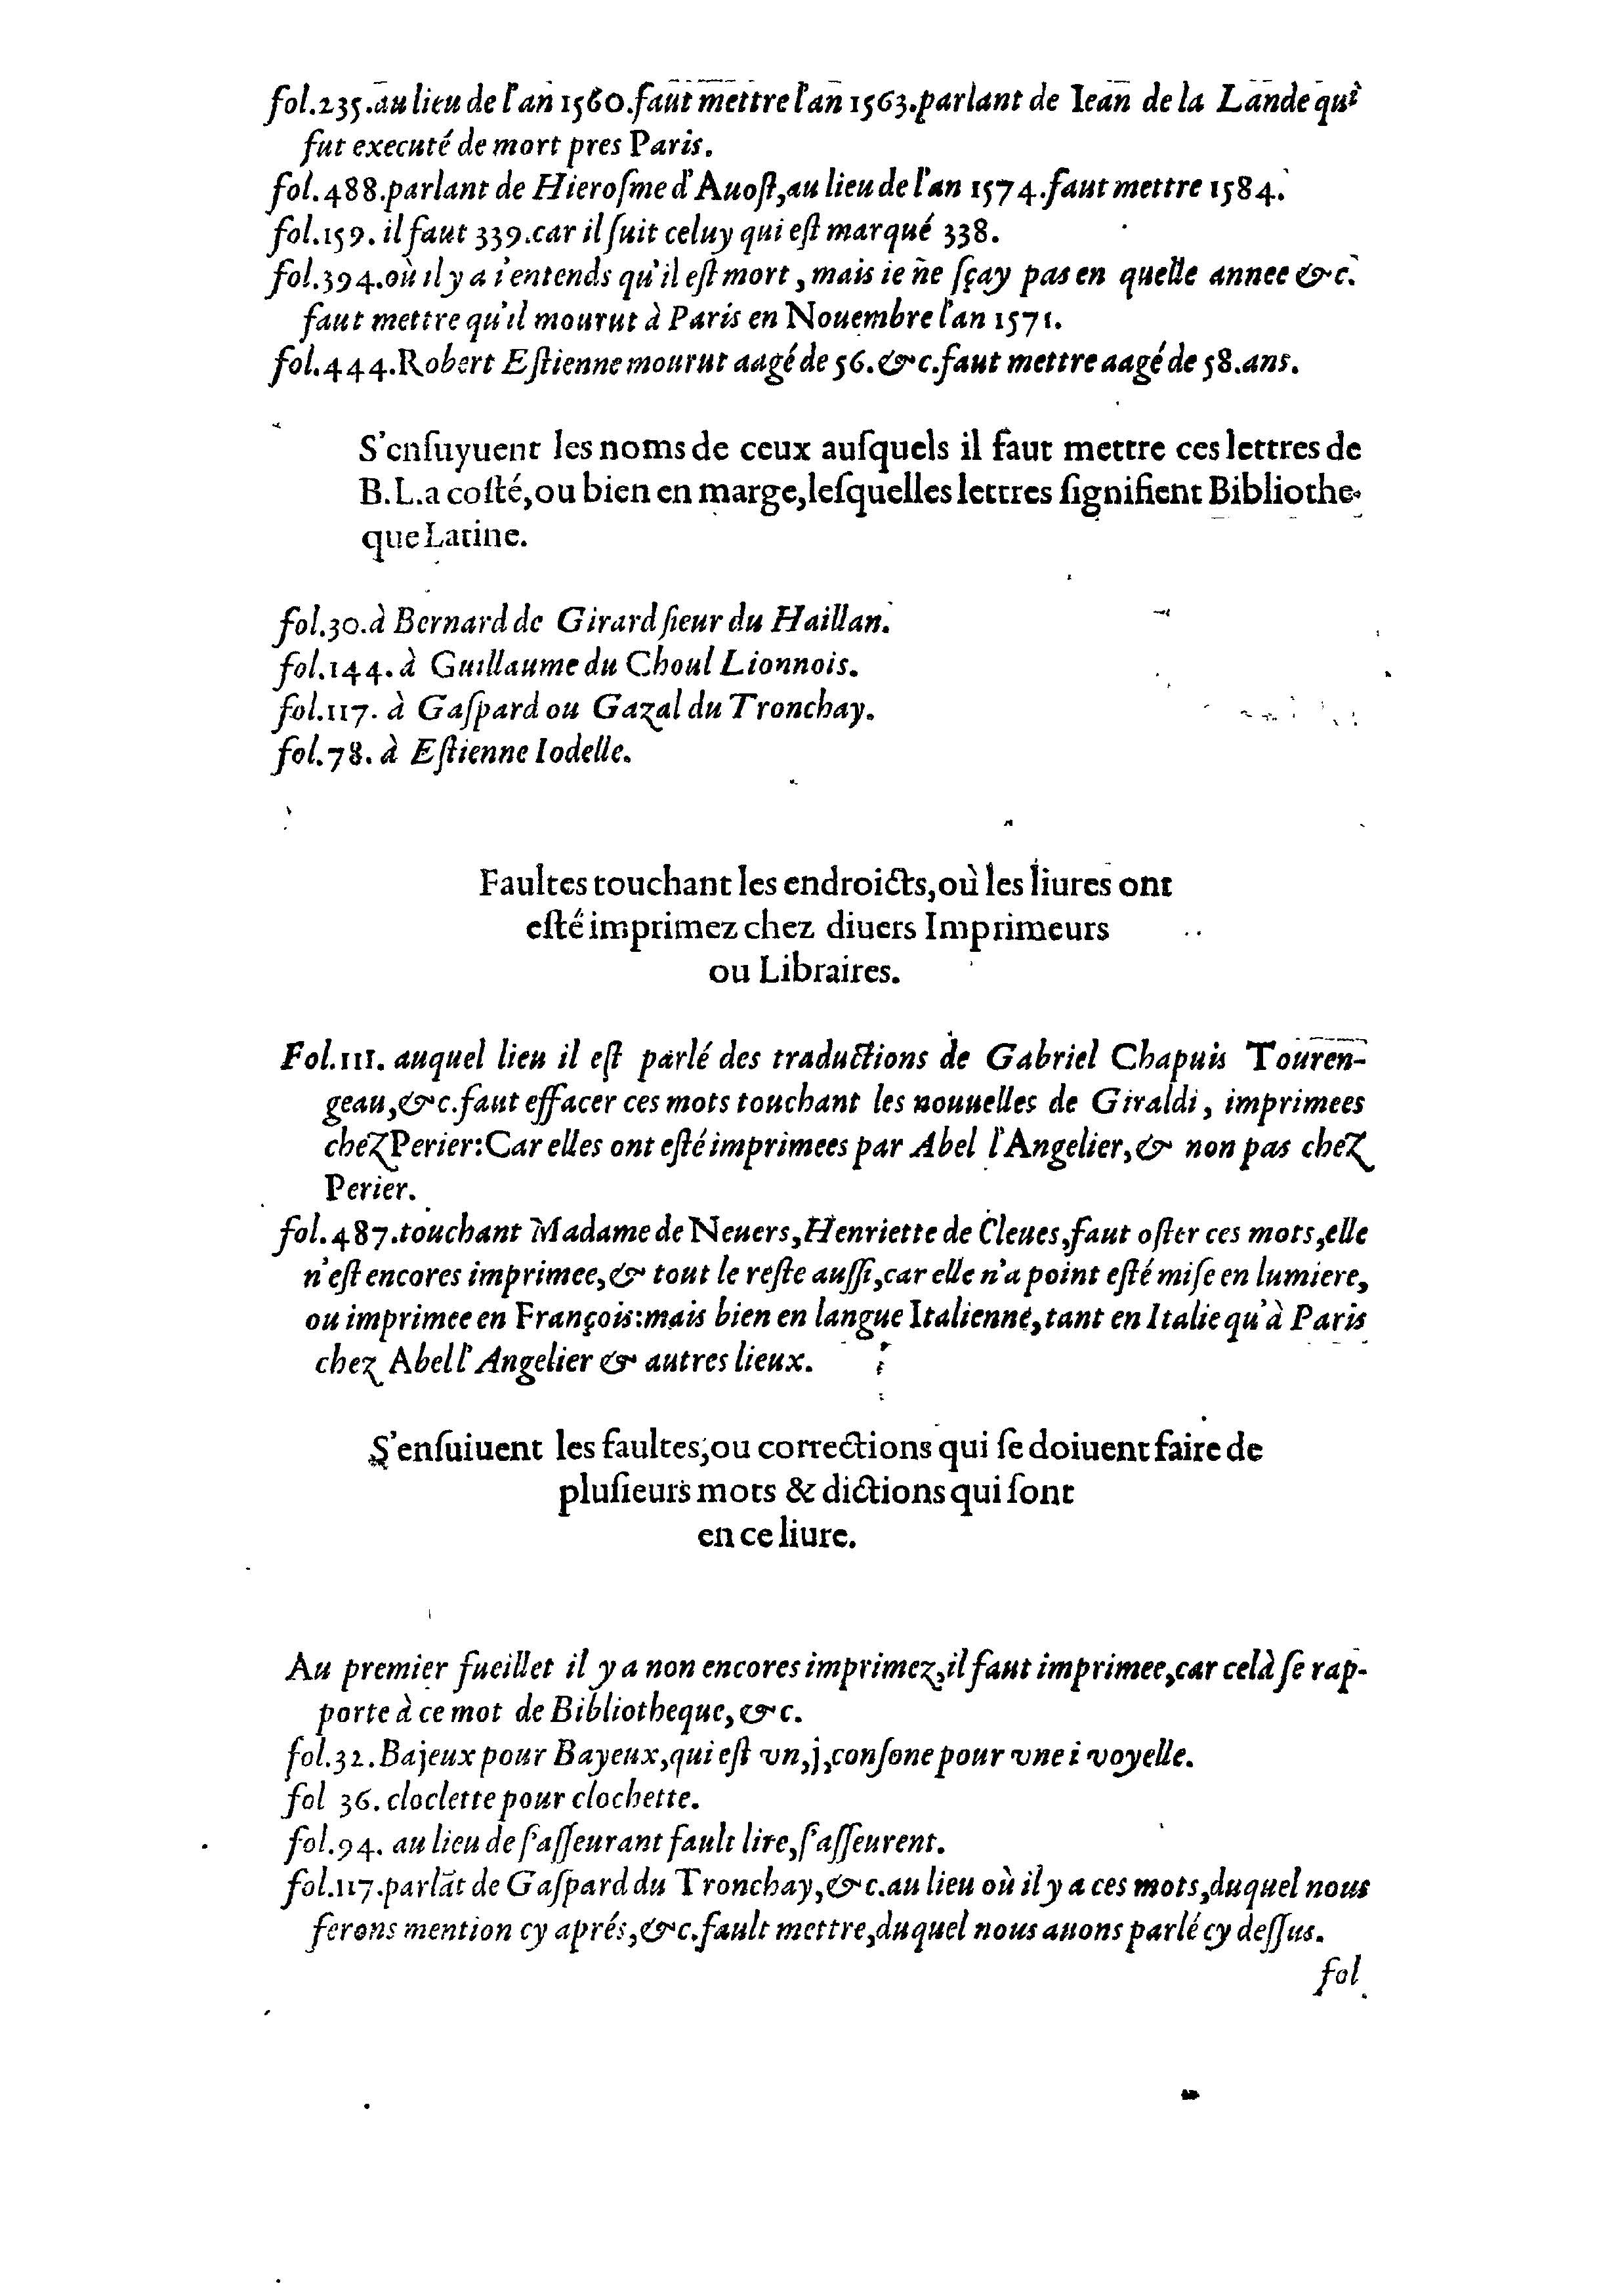 fol.235.au lieu de l'an 1560.faut mettre l'an 1563.parlant de Iean de la Lande qui
fut executé de mort pres Paris.
fol.488.parlant de Hieroſme d'Auoſt,au lieu de l'an 1574.faut mettre 1584.
fol.159. il faut 339.car il ſuit celuy qui eſt marqué 338.
fol.394.où il y a i'entends qu'il eſt mort , mais ie ne ſçay pas en quelle annee &c.
faut mettre qu'il mourut à Paris en Nouembre l'an 1571.
fol.444.Robert Eſtienne mourut aagé de 56.&c.faut mettre aagé de 58.ans.
S'enſuyuent les noms de ceux auſquels il faut mettre ces lettres de
B.L.a coſté,ou bien en marge,leſquelles lettres ſignifient Bibliothe-
que Latine.
fol.30.à Bernard de Girard ſieur du Haillan.
fol.144. à Guillaume du Choul Lionnois.
fol.117. à Gaſpard ou Gazal du Tronchay.
fol.78. à Eſtienne Iodelle.
Faultes touchant les endroicts,où les liures ont
eſté imprimez chez diuers Imprimeurs
ou Libraires.
Fol.111. auquel lieu il eſt parlé des traductions de Gabriel Chapuis Touren-
geau,&c.faut effacer ces mots touchant les nouuelles de Giraldi , imprimees
chez Perier:Car elles ont eſté imprimees par Abel l'Angelier,& non pas chez
Perier.
fol.487.touchant Madame de Neuers,Henriette de Cleues,faut oſter ces mots,elle
n'eſt encores imprimee,& tout le reſte auſſi,car elle n'a point eſté miſe en lumiere,
ou imprimee en François:mais bien en langue Italienne,tant en Italie qu'à Paris
chez Abel l'Angelier & autres lieux.
S'enſuiuent les faultes,ou corrections qui ſe doiuent faire de
pluſieurs mots & dictions qui ſont
en ce liure.
Au premier fueillet il y a non encores imprimez,il faut imprimee,car celà ſe rap-
porte à ce mot de Bibliotheque,&c.
fol.32.Bajeux pour Bayeux,qui eſt vn,j,conſone pour vne i voyelle.
fol 36. cloclette pour clochette.
fol.94. au lieu de ſ'aſſeurant fault lire,ſ'aſſeurent.
fol.117.parlãt de Gaſpard du Tronchay,&c.au lieu où il y a ces mots,duquel nous
ferons mention cy aprés,&c.fault mettre,duquel nous auons parlé cy deſſus.
fol